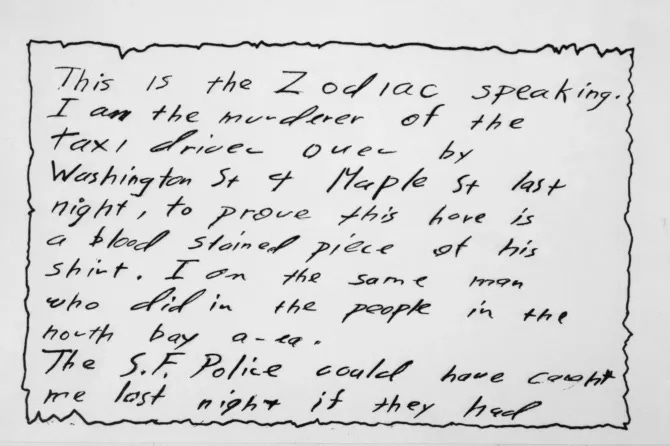 This is the Zodiac speaking.
I am the murderer of the
taxi driver over by
Washington St + Maple St last
night, to prove this here is
a blood stained piece of his
shirt. I am the same man
who did in the people in the
north bay area.
The S.F. Police could have caught
me last night if they had